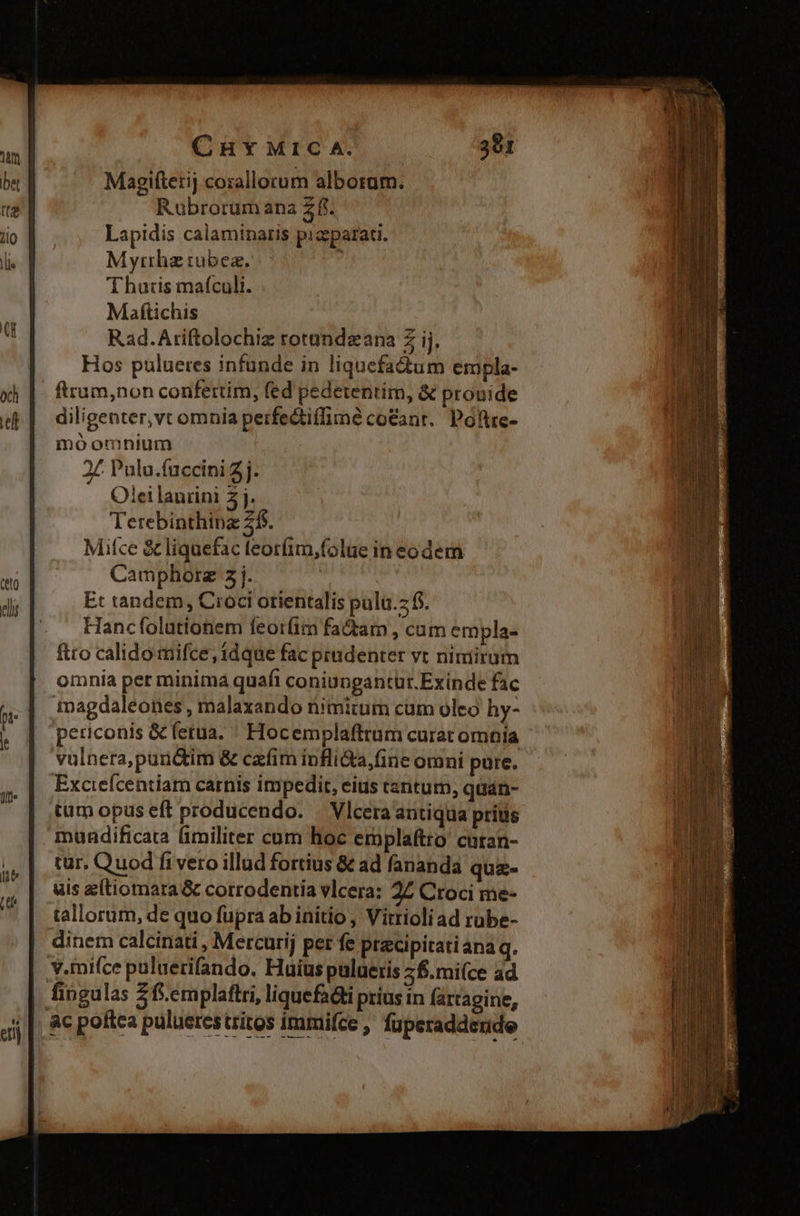 CHYMICA. 381
Magiſterij corallorum alborum.
Rubrorum ana ℥ß.
Lapidis calaminaris præparati.
Myrrhæ rubeæ.
Thuris maſculi.
Maſtichis
Rad. Ariſtolochiæ rotundæ ana ℥ ij.
Hos pulueres infunde in liquefactum empla-
ſtrum, non confertim, ſed pedetentim, & prouide
diligenter, vt omnia perfectiſſimè coëant. Poſtre-
mò omnium
♃ Pulu. ſuccini ℥ j.
Olei laurini ℥ j.
Terebinthinæ ℥ß.
Miſce & liquefac ſeorſim, ſolue in eodem
Camphoræ ʒ j.
Et tandem, Croci orientalis pulu. ʒ ß.
Hanc ſolutionem ſeorſim factam, cum empla-
ſtro calido miſce, idque fac prudenter vt nimirum
omnia per minima quaſi coniungantur. Exinde fac
magdaleones, malaxando nimirum cum oleo hy-
periconis & ſerua. Hoc emplaſtrum curat omnia
vulnera, punctim & cæſim inflicta, ſine omni pure.
Excreſcentiam carnis impedit, eius tantum, quan-
tum opus eſt producendo. Vlcera antiqua priùs
mundificata ſimiliter cum hoc emplaſtro curan-
tur. Quod ſi vero illud fortius & ad ſananda quæ-
uis æſtiomata & corrodentia vlcera: ♃ Croci me-
tallorum, de quo ſupra ab initio, Vitrioli ad rube-
dinem calcinati, Mercurij per ſe præcipitati ana q.
v. miſce pulueriſando. Huius pulueris ʒß. miſce ad
ſingulas ℥ß. emplaſtri, liquefacti prius in ſartagine,
ac poſtea pulueres tritos immiſce, ſuperaddendo